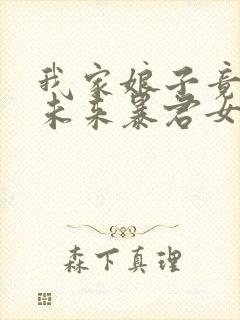 我家娘子竟
未来暴君女
森下真理